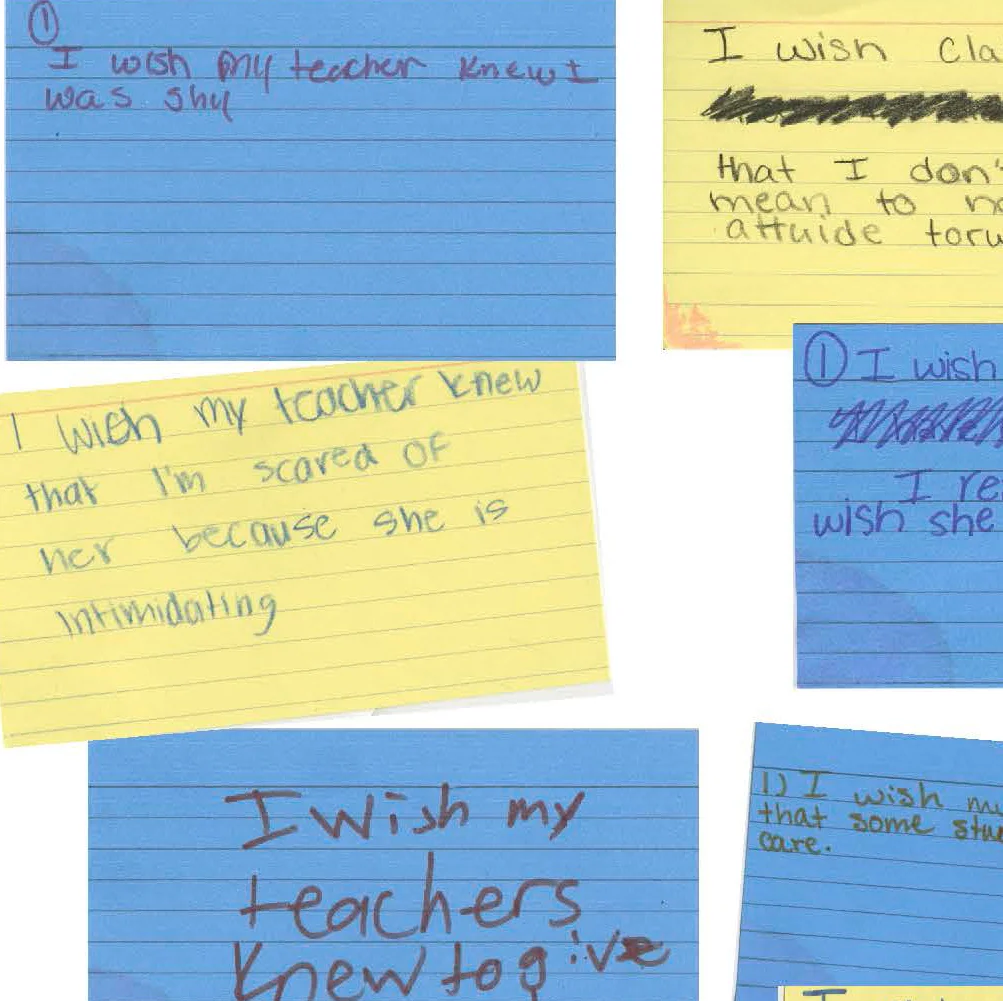 ①
I wish my teacher knew I
was shy
I wish Cla
that I don'
mean to no
attuide toru
① I wish
I re
wish she
I wish my teacher knew
that I'm scared of
her because she is
intimidating
I wish my
teachers
knew to give
1) I wish my
that some stu
care.